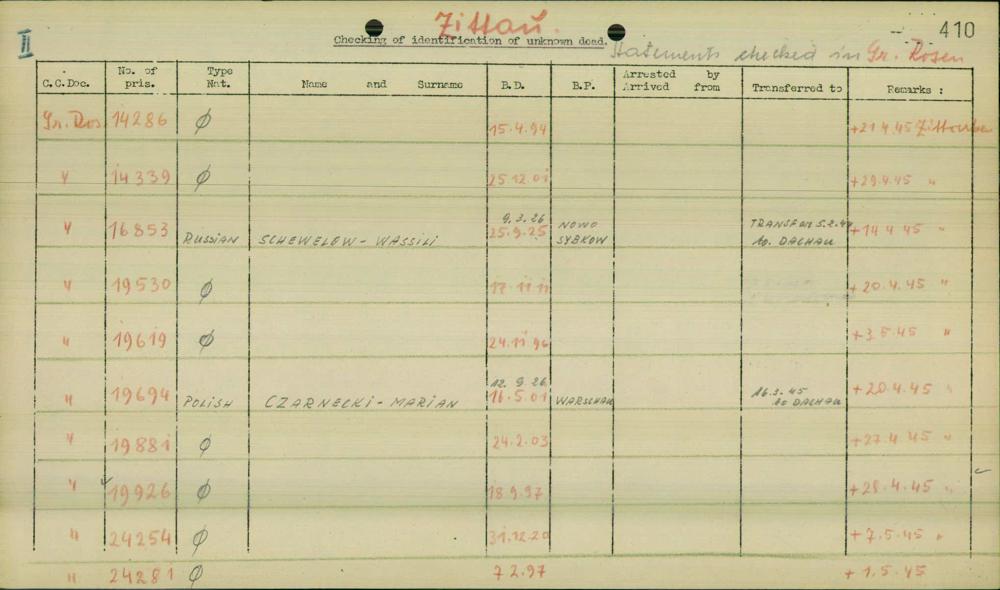 II
Zittau.
410
Checking of identification of unknown dead.
Statements checked in Gr. Rosen
C.C.Doc. No. of pris. Type Nat. Name and Surname B.D. B.P. Arrested by Arrived from Transferred to Remarks :
Gr. Ros 14286 ø 15.4.94 +21.4.45
" 14339 ø 25.12.01 +29.4.45 "
" 16853 RUSSIAN SCHEWELEW - WASSILI 9.3.26 25.9.25 NOWO SYBKOW TRANSF to. DACHAU +14.4.45 "
" 19530 ø 17.11.11 +20.4.45 "
" 19619 ø 24.11.96 +3.5.45 "
" 19694 POLISH CZARNECKI - MARIAN 12.9.26 16.5.01 WARSCHAU 45 to DACHAU +20.4.45 "
" 19881 ø 24.2.03 +27.4.45 "
" 19926 ø 18.9.97 +28.4.45 "
" 24254 ø 31.12.20 +7.5.45 "
" 24281 ø 7.2.97 +1.5.45